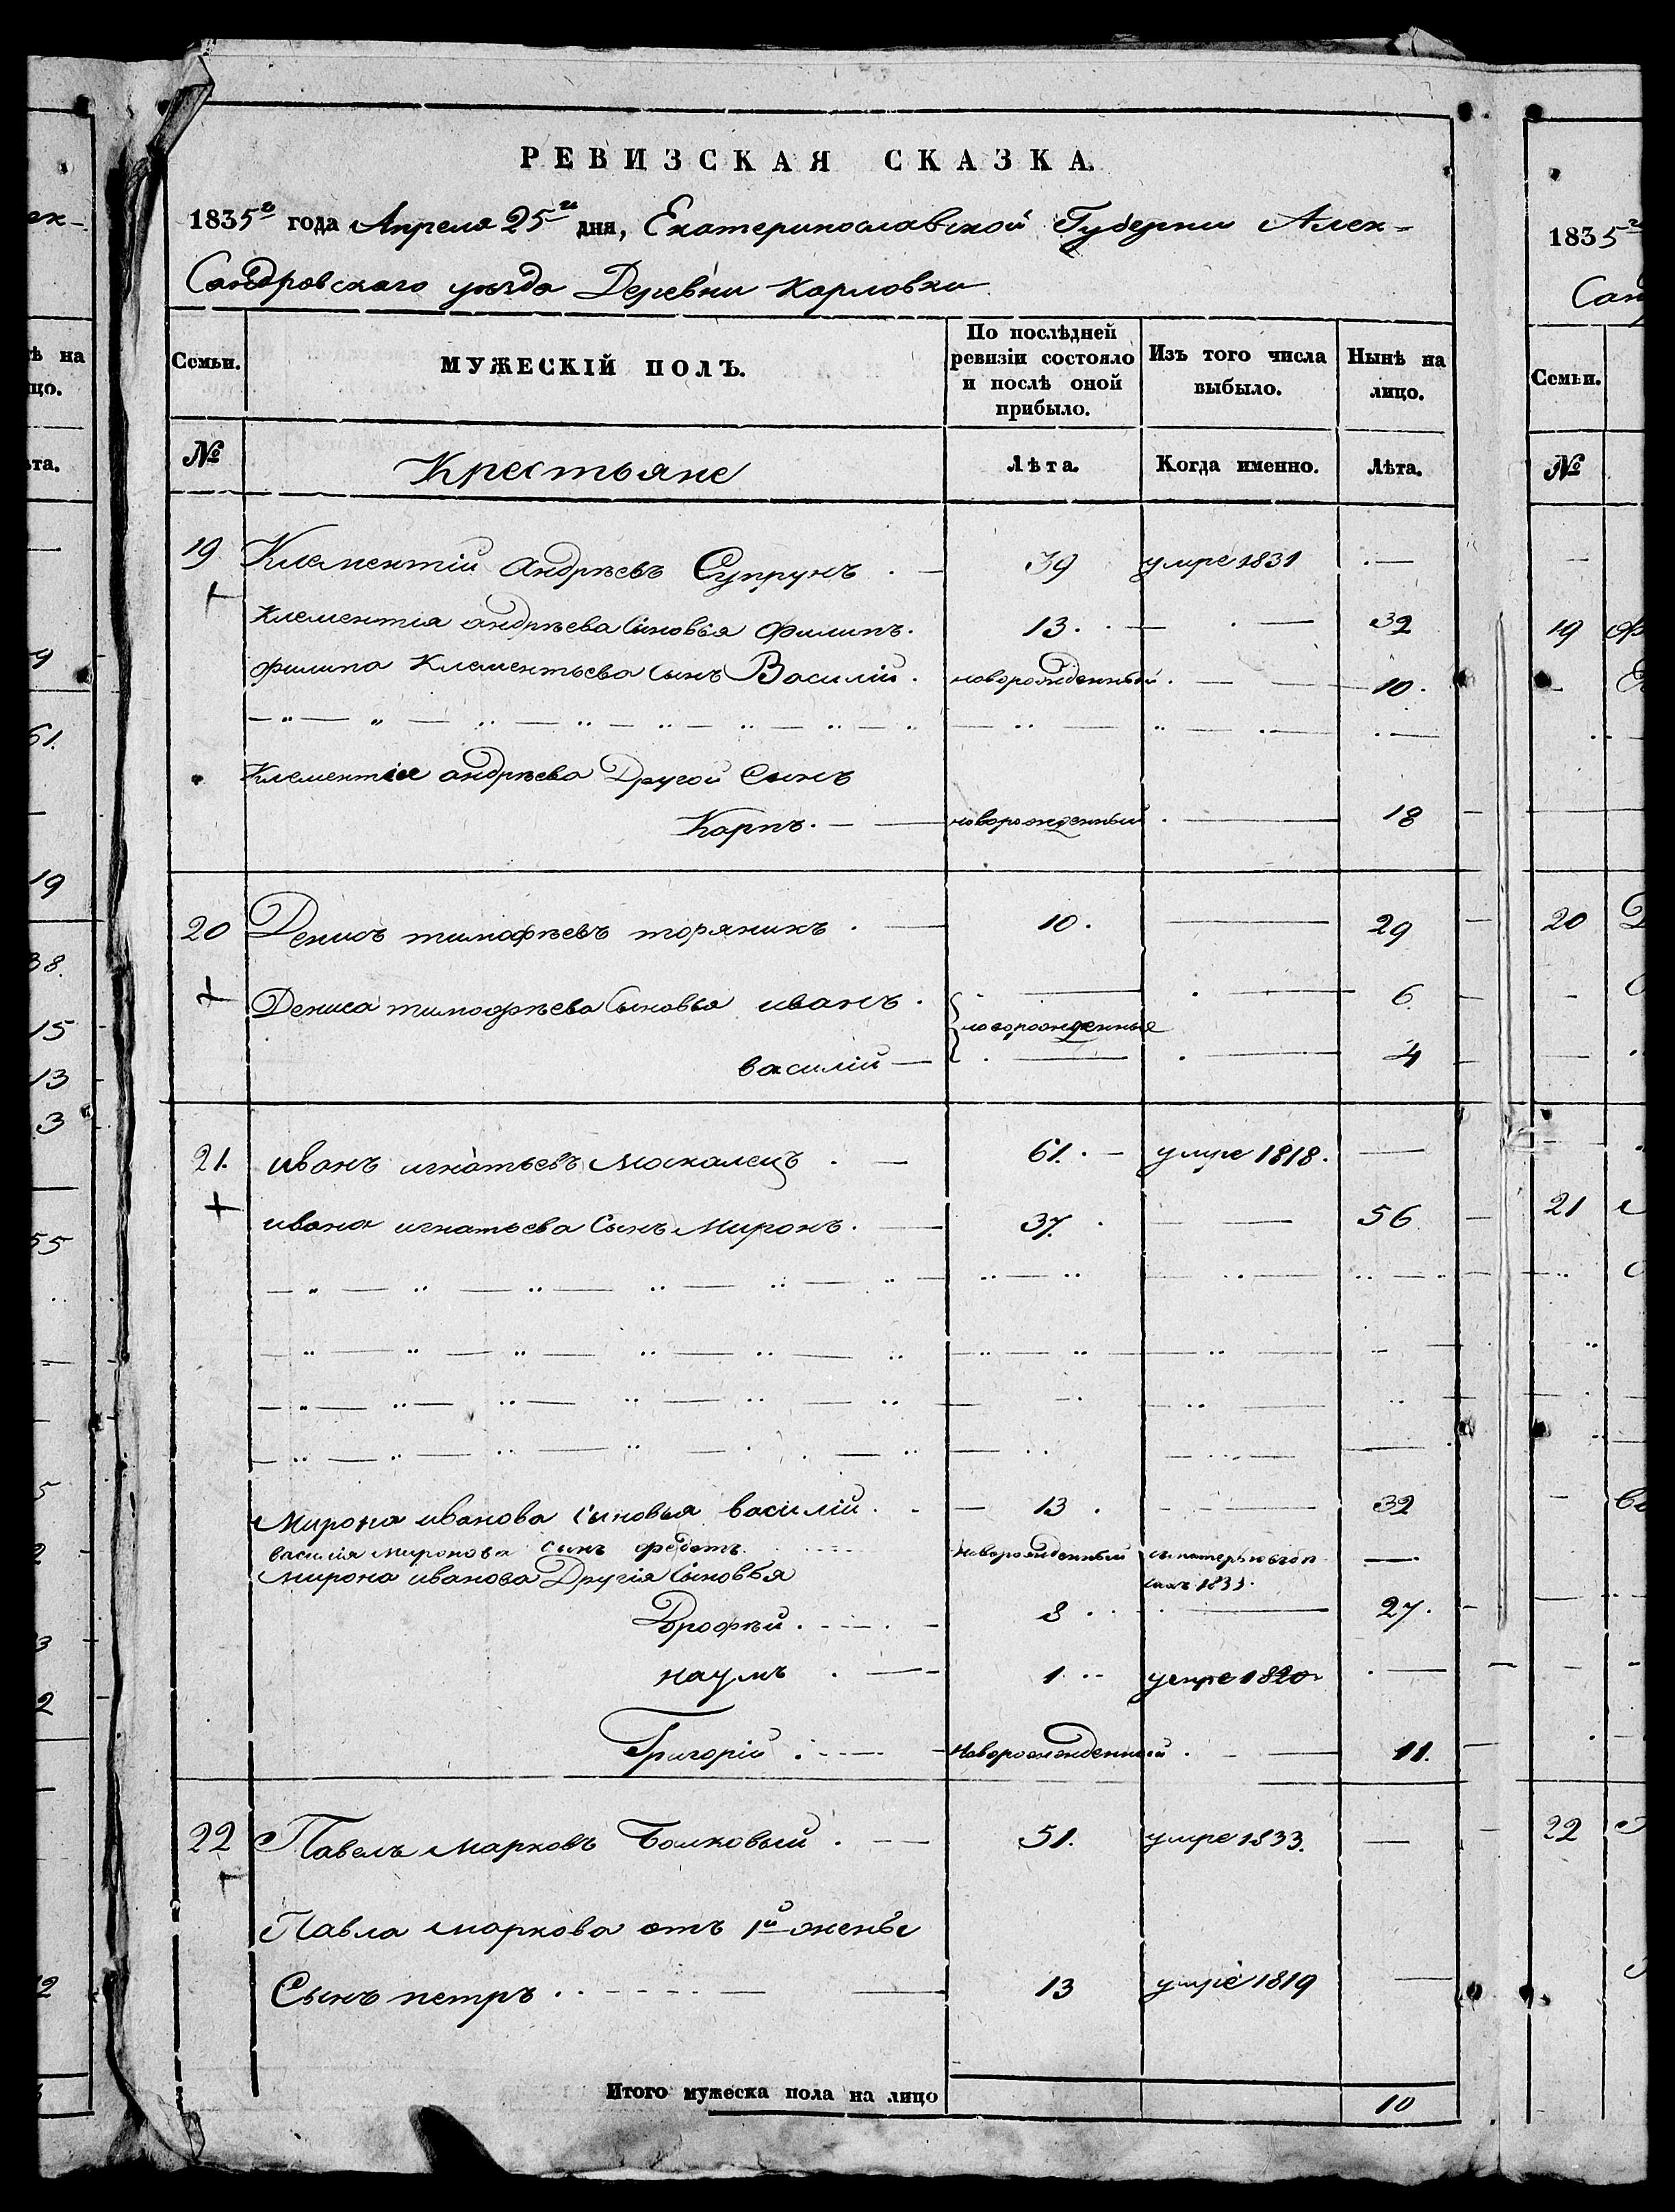 РЕВИЗСКАЯ СКАЗКА.
1835го года Апреля 25го дня, Екатеринославской Губернии Алек-
Сандровского уѣзда Деревни Карловки
Семьи. МУЖЕСКІЙ ПОЛЪ. По послѣдней ревизіи состояло и послѣ оной прибыло. Изъ того числа выбыло. Нынѣ на лицо.
№ Крестьяне Лѣта. Когда именно. Лѣта.
19 Клементій андрѣевъ Супрунъ . — 39 умре 1831 . —
Клементія андрѣева Сіновія Филипъ. 13. — . — 32
филипа Клементьева сынъ Василій. новорожденный. — — 10.
Клементія андрѣева Другой Сынъ
Карпъ. — — новорожденный . — 18
20 Денисъ тимофѣевъ торяникъ . — 10. — 29
Дениса тимофѣева Сыновья иванъ . . — . — 6
новорожденные
василій — . — . — 4
21. иванъ игнатьевъ Москалецъ . — 61. — умре 1818. —
ивана игнатьева Сынъ Миронъ. — 37. . — — 56
Мирона иванова Сыновья василій . . — 13 . — 32
василія миронова сынъ федотъ новорожденный
мирона иванова Другія Сыновья
1833.
Дорофѣй . — 8 . . — 27.
наумъ . — 1 .. умре 1820 . —
Григорій . — новорожденный . — 11.
22 Павелъ Марковъ . — 51. умре 1833. —
Павла маркова отъ 1й жены
Сынъ петръ . . — 13 умре 1819 —
Итого мужеска пола на лицо 10
1835
Семьи.
№
19
20
21
22
ѣ на
цо.
ѣта.
9
61.
19
38.
15
13
3
55
5
2
3
2